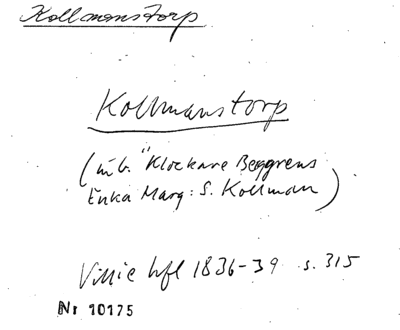 Kollmanstorp
Kollmanstorp
(inb. "Klockare Berggrens
Enka Marg: S. Kollman)
Villie hfl 1836-39 s. 315
Nr 10175